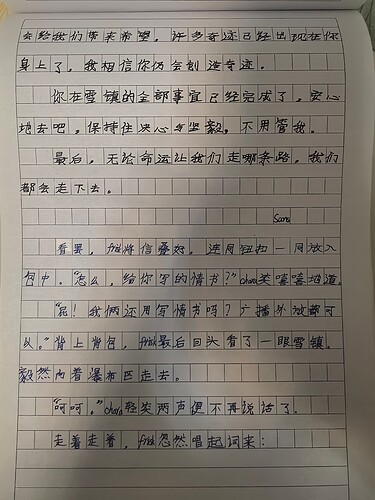 会给我们带来希望。许多奇迹已经出现在你
身上了，我相信你仍会创造奇迹。
你在雪镇的全部事宜已经完成了，安心
地去吧，保持住决心与坚毅，不用管我。
最后，无论命运让我们走哪条路，我们
都会走下去。
Sans
看罢，frisk将信叠好，连同纽扣一同放入
包中。“怎么，给你写的情书？”chara笑嘻嘻地道。
“屁！我俩还用写情书吗？广播外放都可
以。”背上背包，frisk最后回头看了一眼雪镇，
毅然向着瀑布区走去。
“呵呵。”chara轻笑两声便不再说话了。
走着走着，frisk忽然唱起词来：